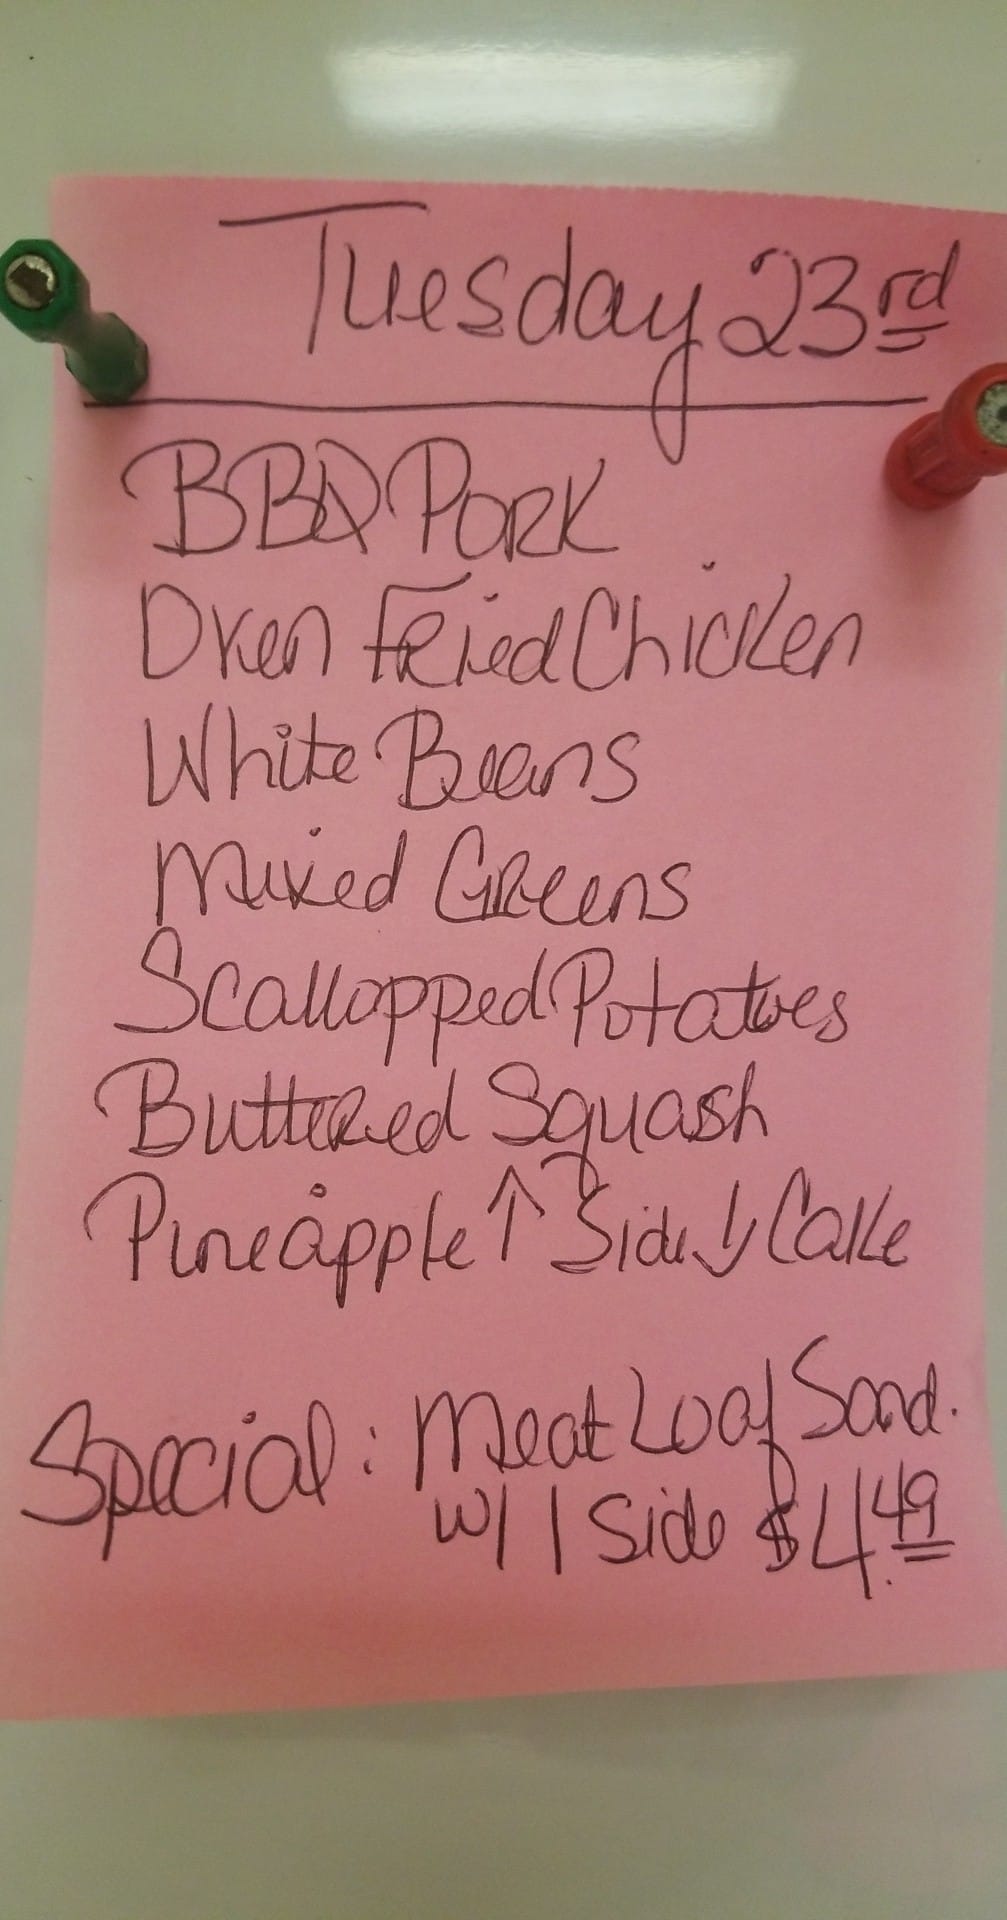 Tuesday 23rd
BBQ Pork
Oven Fried Chicken
White Beans
Mixed Greens
Scallopped Potatoes
Buttered Squash
Pineapple ↑ Side ↓ Cake
Special: Meat Loaf Sand.
w/ 1 Side $4.49